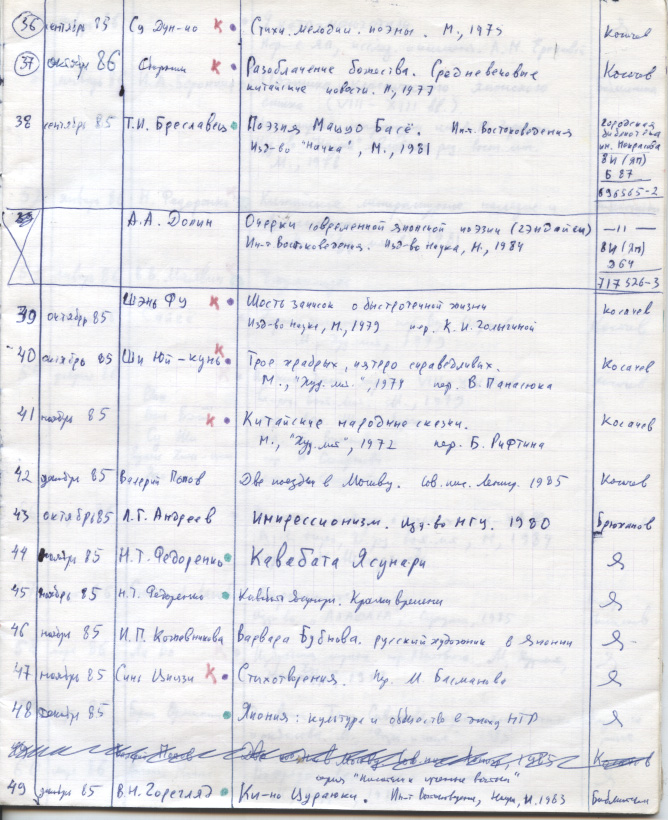 36 сентябрь 85 Су Дун-по К • Стихи. Мелодии. Поэмы. М., 1975 Косачев
37 октябрь 86 Сборник К • Разоблачение божества. Средневековые Косачев
китайские повести. М., 1977
38 сентябрь 85 Т.И. Бреславец • Поэзия Мацуо Басё. Ин-т Востоковедения городская
Изд-во "Наука", М., 1981 библиотека
им. Некрасова
8И (ЯП)
Б 87
696565-2
А.А. Долин Очерки современной японской поэзии (гэндайси) —11—
Ин-т Востоковедения. Изд-во Наука, М., 1984 8И (Яп)
Д64
717526-3
39 октябрь 85 Шэнь Фу К • Шесть записок о быстротечной жизни Косачев
Изд-во Наука, М., 1979 пер. К.И. Голыгиной
40 октябрь 85 Ши Юй-кунь К • Трое храбрых, пятеро справедливых. Косачев
М., "Худ. лит.", 1974 пер. В. Панасюка
41 ноябрь 85 К • Китайские народные сказки. Косачев
М., "Худ. лит", 1972 пер. Б. Рифтина
42 декабрь 85 Валерий Попов Две поездки в Москву. Сов. пис. Ленингр. 1985 Косачев
43 октябрь 85 Л.Г. Андреев Импрессионизм. Изд-во МГУ. 1980 Брюханов
44 ноябрь 85 Н.Т. Федоренко • Кавабата Ясунари Я
45 ноябрь 85 Н.Т. Федоренко • Кавабата Ясунари. Краски времени Я
46 ноябрь 85 И.П. Кожевникова Варвара Бубнова. русский художник в Японии Я
47 ноябрь 85 Синь Цицзи К • Стихотворения. Пер. М. Басманова Я
48 декабрь 85 • Япония: культура и общество в эпоху НТР Я
1985
серия "Писатели и ученые Востока"
49 декабрь 85 В.Н. Горегляд • Ки-но Цураюки. Ин-т Востоковедения, Наука, М. 1983 Библиотеки